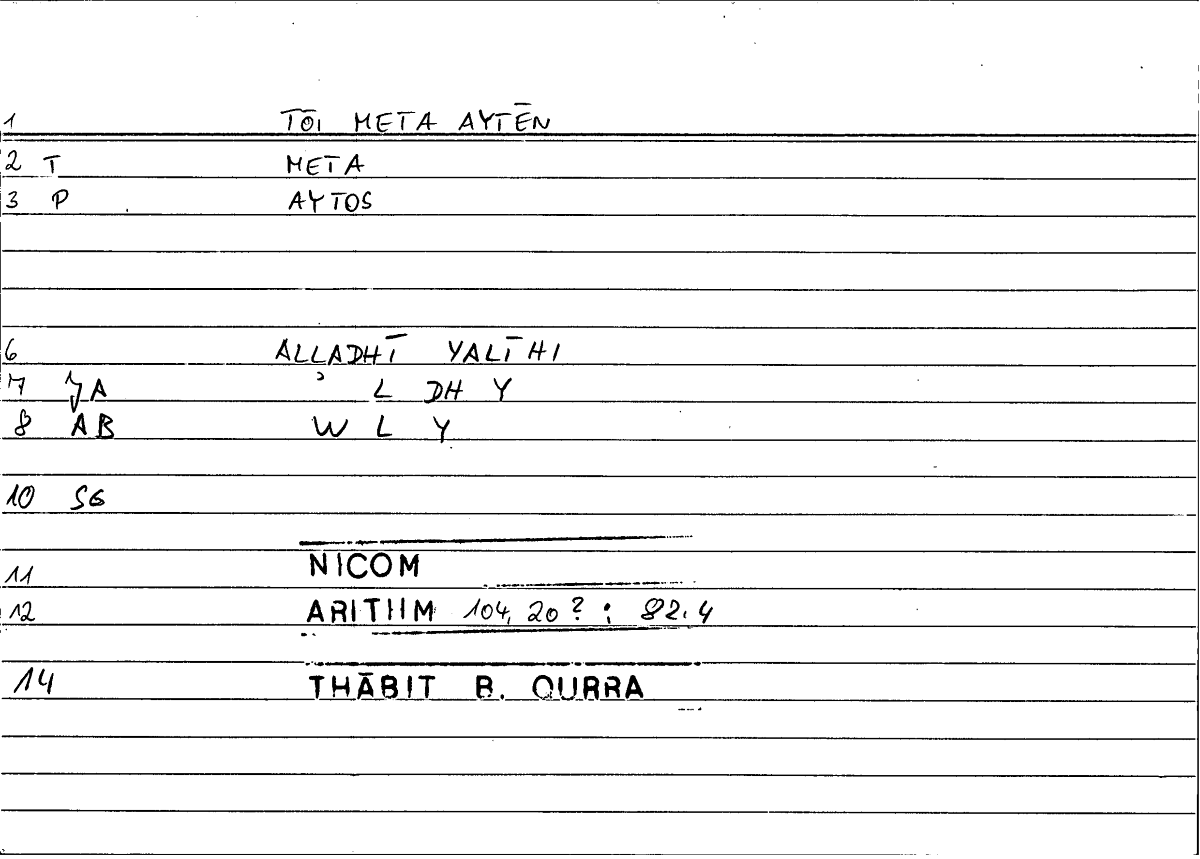 1 TŌI META AYTĒN
2 T META
3 P AYTOS
6 ALLADHĪ YALĪHI
7 JA ʾ L DH Y
8 AB W L Y
10 SG
11 NICOM
12 ARITHM 104, 20 ? : 82.4
14 THĀBIT B. QURRA